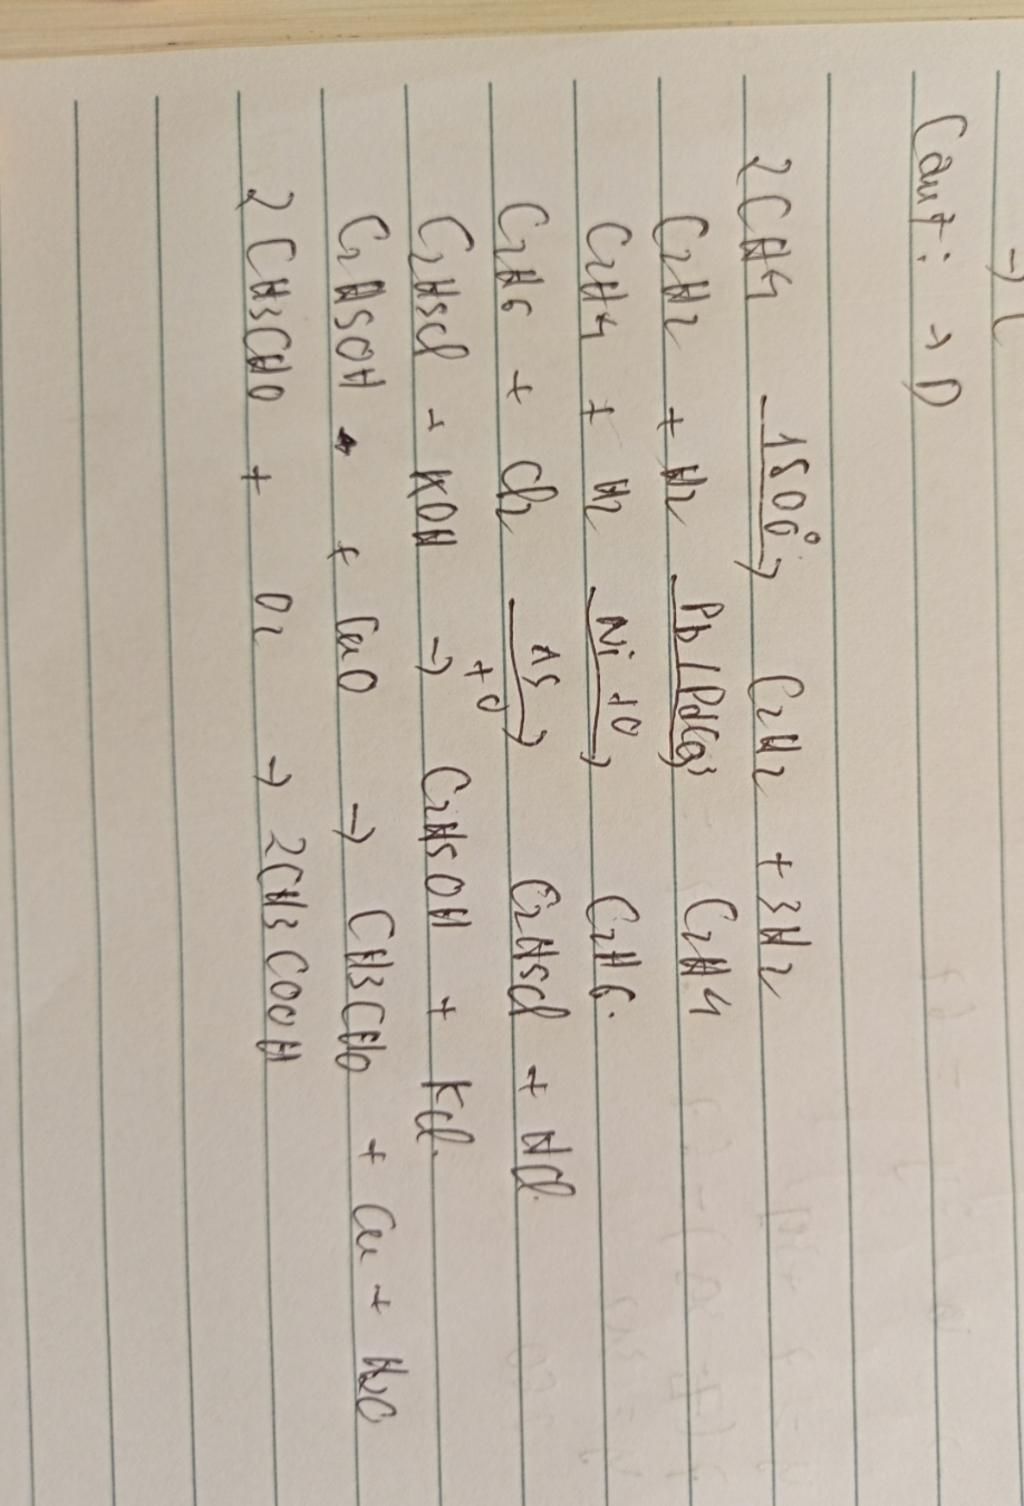 → 
Câu 7: → D
2CH4 —1500°→ C2H2 + 3H2
C2H2 + H2 —Pb/PdCO3→ C2H4
C2H4 + H2 —Ni t0→ C2H6.
C2H6 + Cl2 —as→ C2H5Cl + HCl.
C2H5Cl + KOH —t0→ C2H5OH + KCl.
C2H5OH + CuO → CH3CHO + Cu + H2O
2CH3CHO + O2 → 2CH3COOH